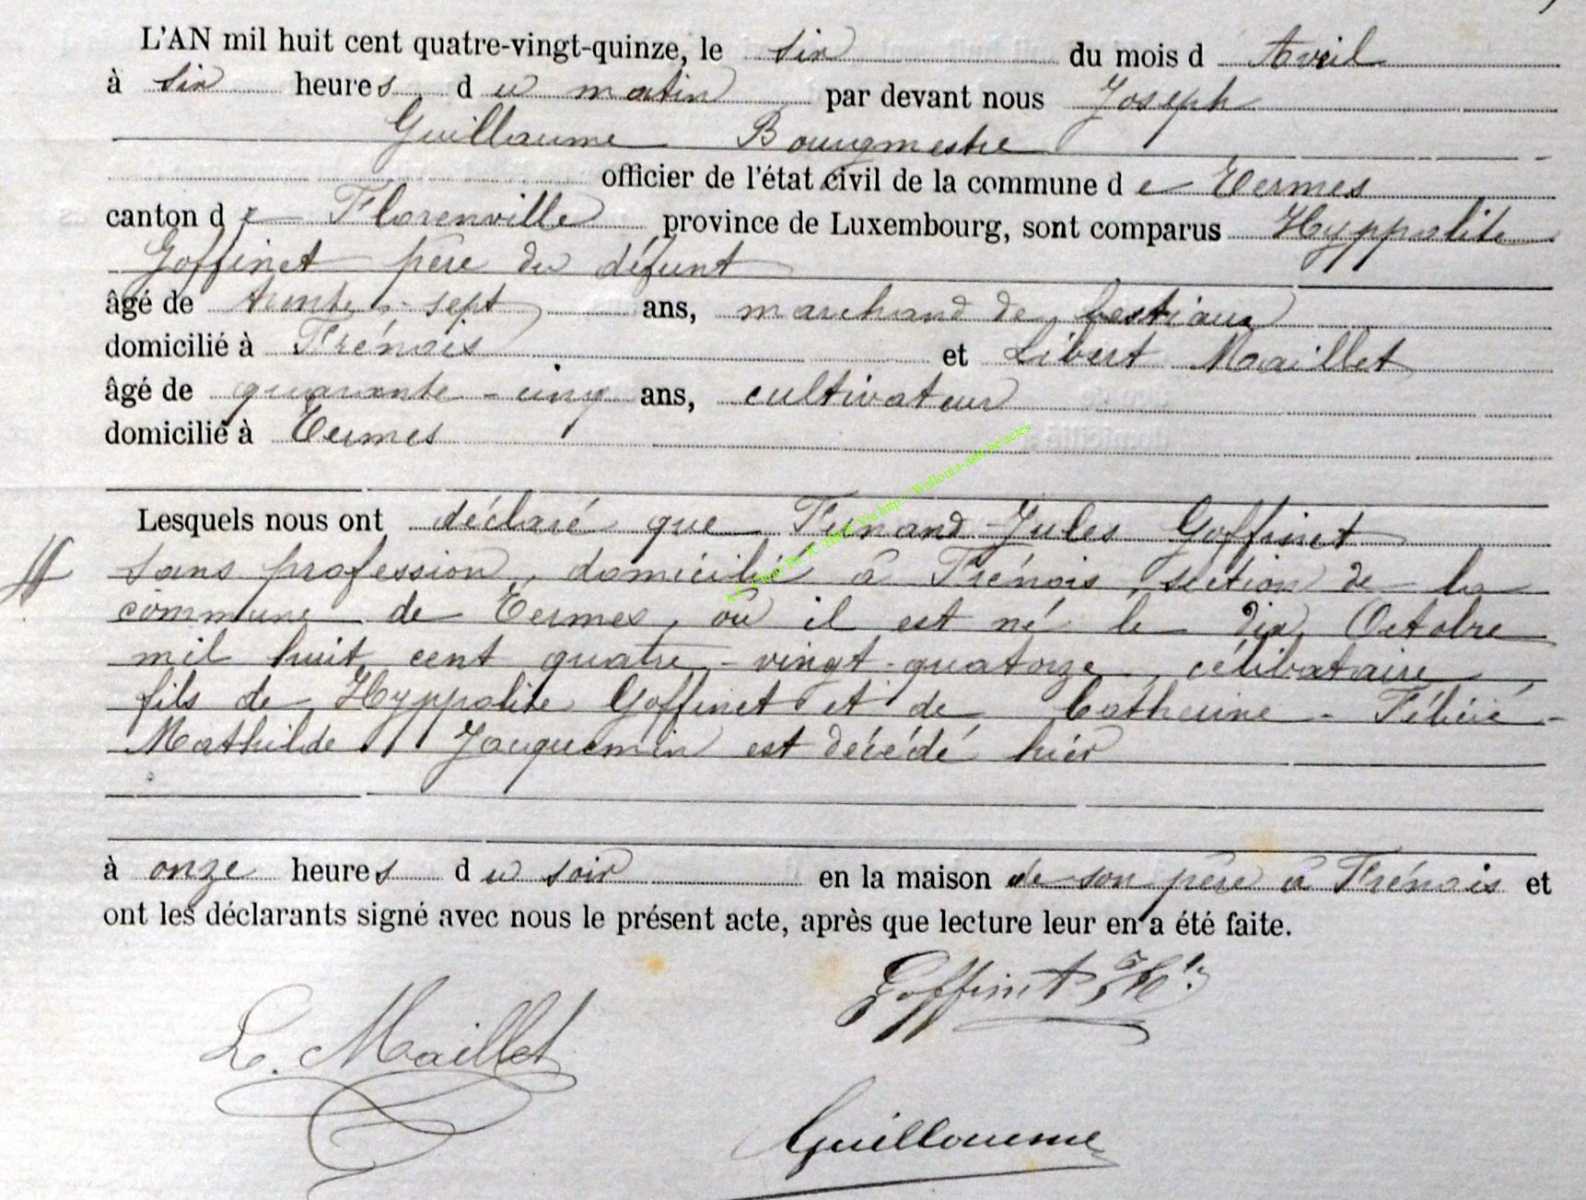 L'AN mil huit cent quatre-vingt-quinze, le six du mois d Avril
à six heures du matin par devant nous Joseph
Guillaume Bourgmestre
officier de l'état civil de la commune de Termes
canton de Florenville province de Luxembourg, sont comparus Hyppolite
Goffinet père du défunt
âgé de trente-sept ans, marchand de bestiaux
domicilié à Frénois et Libert Maillet
âgé de quarante-cinq ans, cultivateur
domicilié à Termes
Lesquels nous ont déclaré que Fernand-Jules Goffinet
sans profession, domicilié à Frénois, section de la
commune de Termes, où il est né le dix Octobre
mil huit cent quatre-vingt-quatorze, célibataire,
fils de Hyppolite Goffinet et de Catherine-Félicie-
Mathilde Jacquemin est décédé hier
à onze heures du soir en la maison de son père à Frénois et
ont les déclarants signé avec nous le présent acte, après que lecture leur en a été faite.
Goffinet Hte
L. Maillet
Guillaume